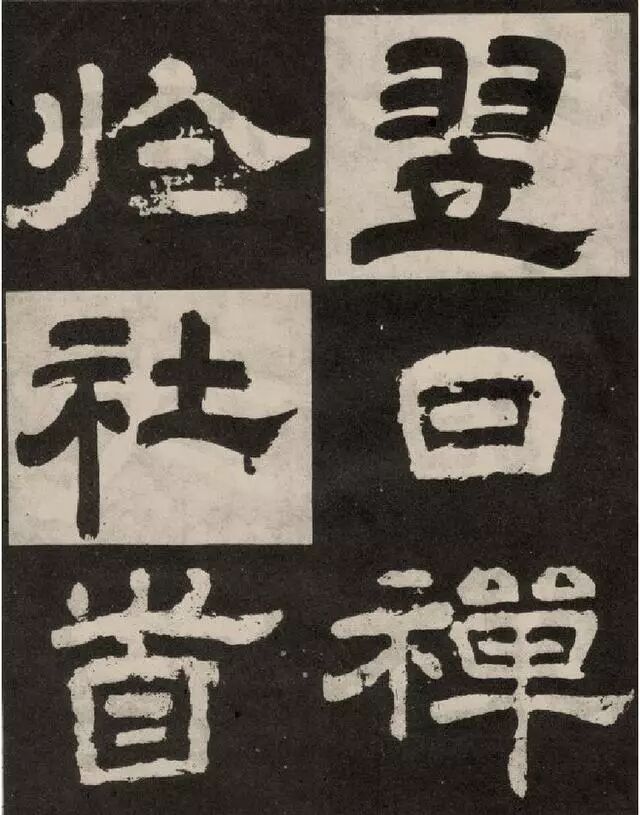 翌日禪
於社首